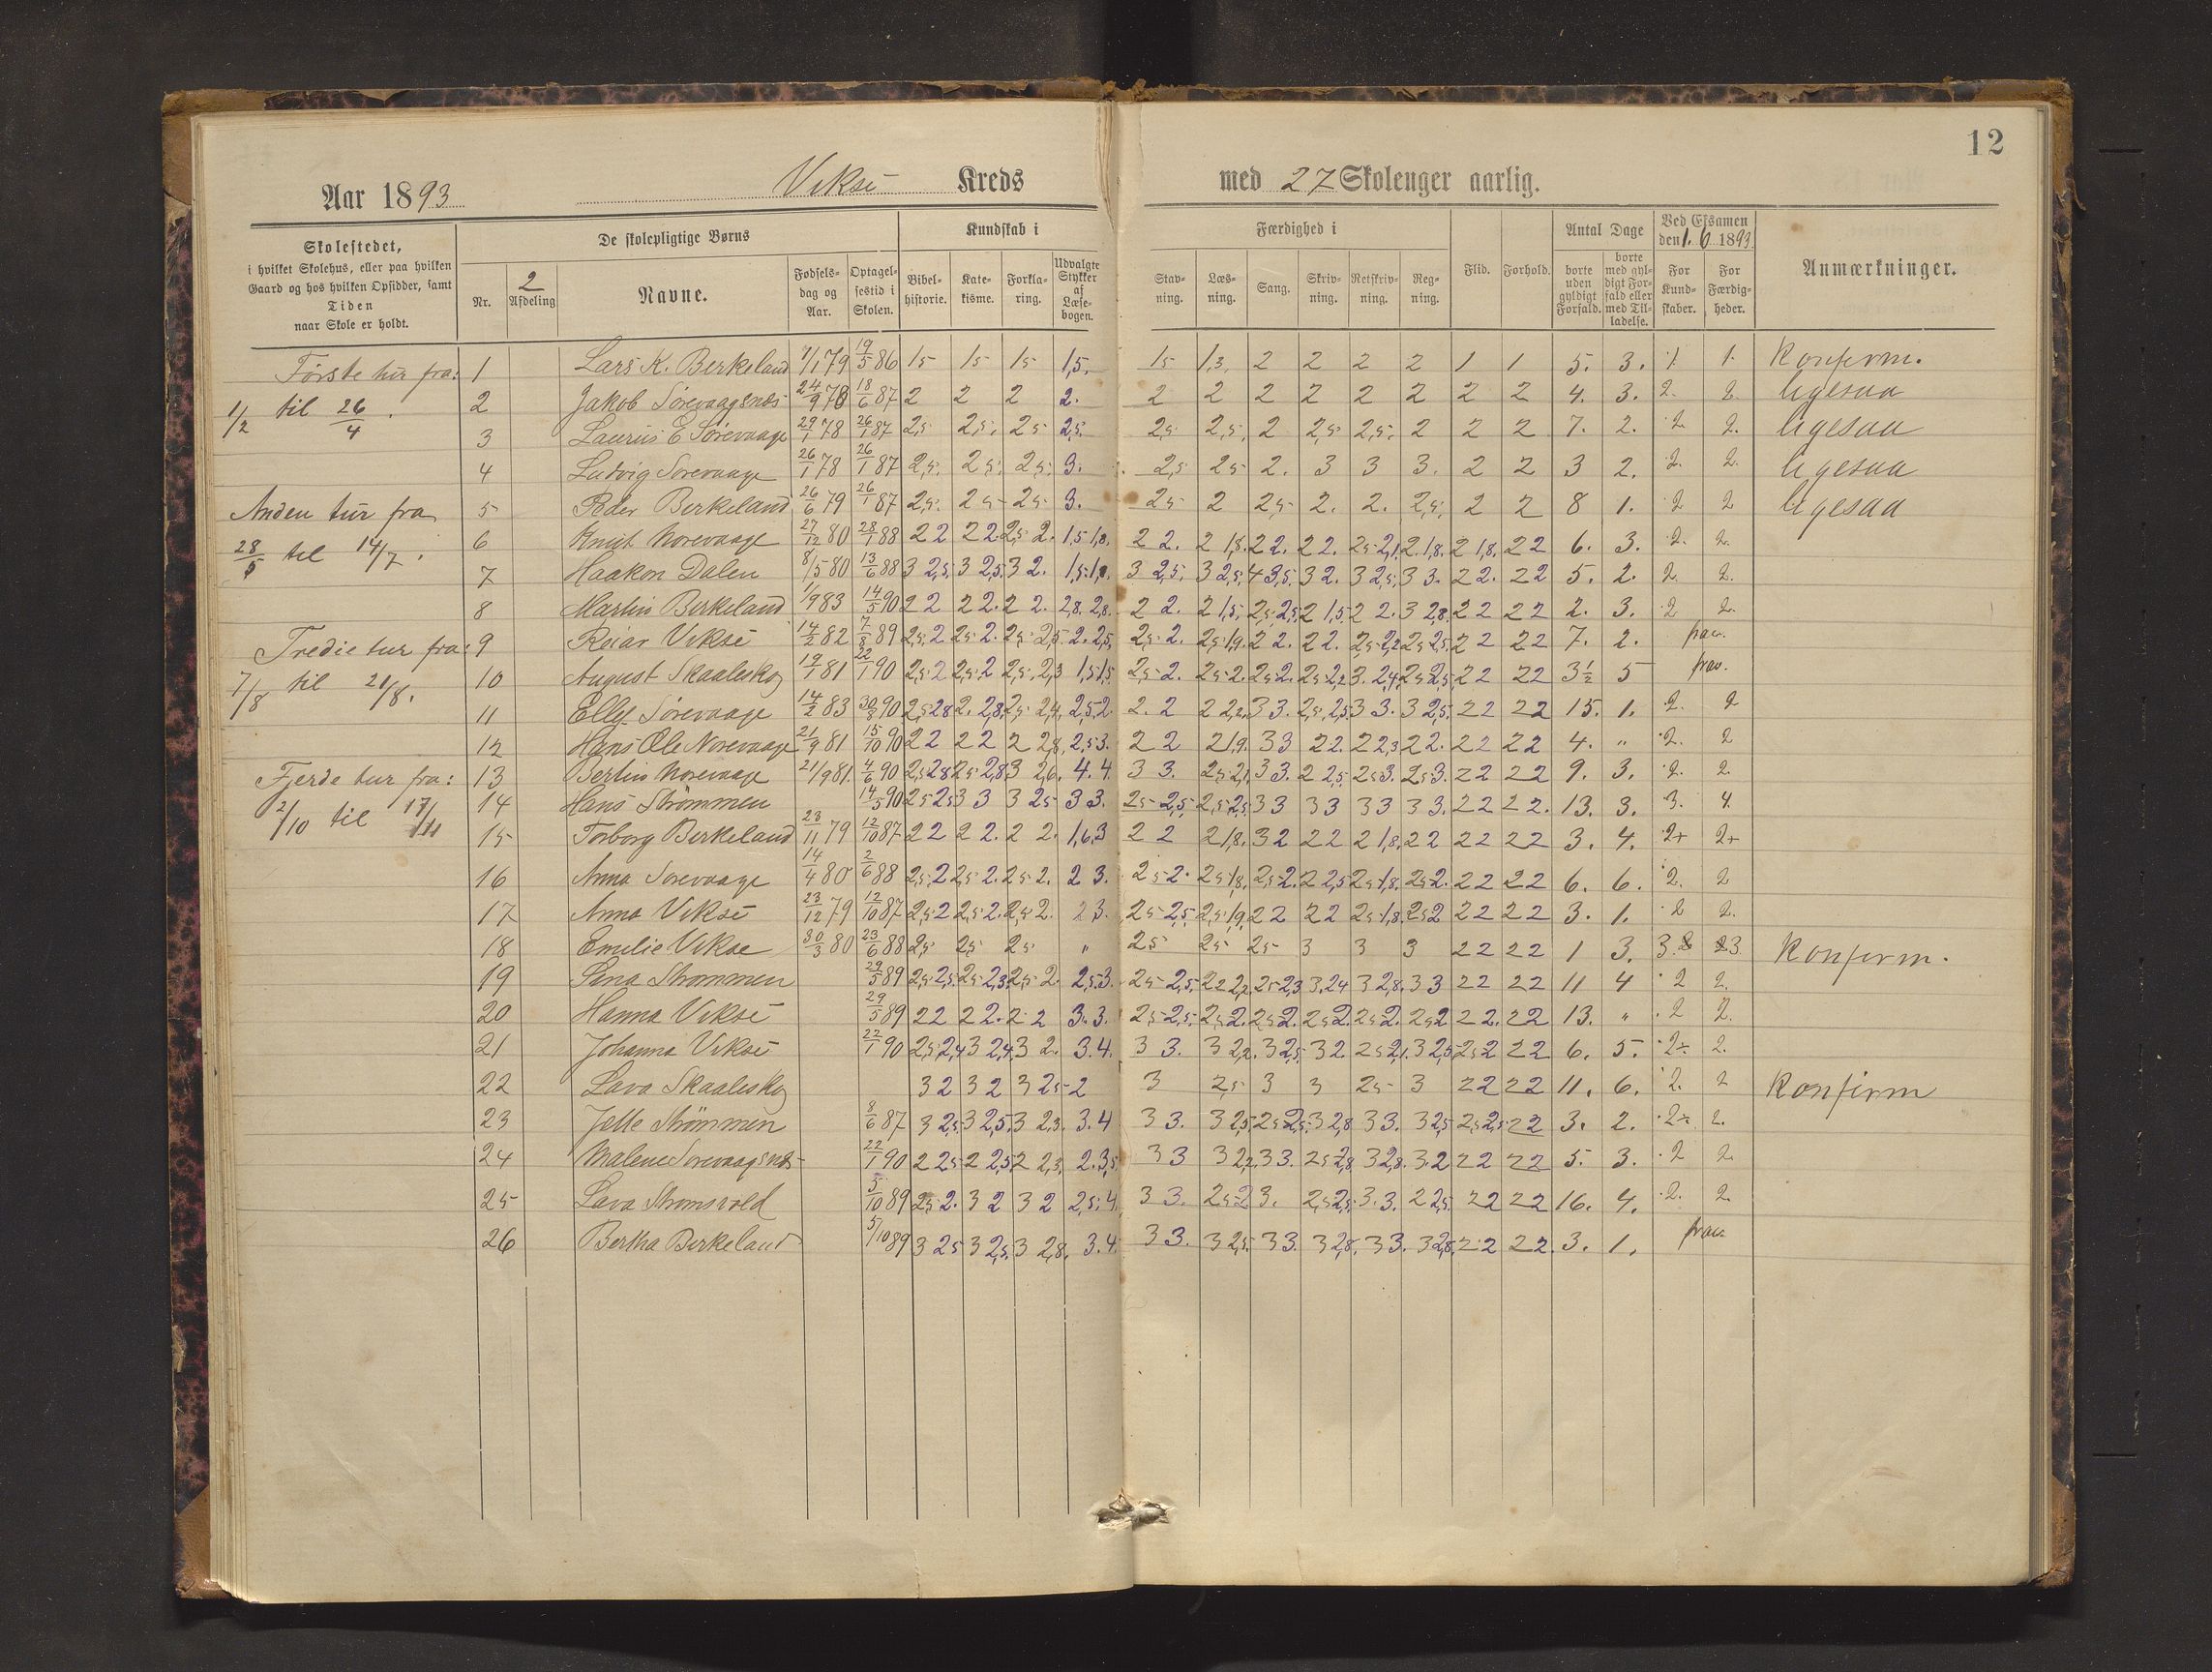 12
Aar 1893 Viksè Kreds med 27 Skoleuger aarlig.
Skolestedet, i hvilket Skolehus, eller paa hvilken Gaard og hos hvilken Opsidder, samt Tiden naar Skole er holdt.
De skolepligtige Børns
Nr. 2 Afdeling Navne. Fødselsdag og Aar. Optagelsestid i Skolen.
Kundskab i
Bibelhistorie. Katekisme. Forklaring. Udvalgte Stykker af Læsebogen.
Færdighed i
Stavning. Læsning. Sang. Skrivning. Retskrivning. Regning.
Flid. Forhold.
Antal Dage
borte uden gyldigt Forfald. borte med gyldigt Forfald eller med Tilladelse.
Ved Eksamen den 1. 6 1893.
For Kundskaber. For Færdigheder.
Anmærkninger.
Første tur fra: 1/2 til 26/4.
Anden tur fra 28/5 til 14/7.
Tredie tur fra: 7/8 til 21/8.
Fjerde tur fra: 2/10 til 17/11
1 Lars K. Berkeland 1/1 79 19/5 86 15 15 15 1,5. 15 1,3. 2 2 2 2 1 1 5. 3. 1 1. Konferm.
2 Jakob Sørevaagsnæs 24/9 78 18/6 87 2 2 2 2. 2 2 2 2 2 2 2 2 4. 3. 2. 2. ligesaa
3 Laurus E Sørevaage 29/1 78 26/1 87 2,5 2,5, 25 2,5. 2,5 2,5, 2 2,5 2,5. 2 2 2 7. 2. 2 2. ligesaa
4 Ludvig Sorevaage 26/1 78 26/1 87 2,5. 25. 2,5. 3. 2,5 25 2. 3 3 3. 2 2 3 2. 2. 2. ligesaa
5 Peder Berkeland 26/6 79 26/1 87 2,5. 25 25 3. 25 2 25 2. 2. 2,5. 2 2 8 1. 2 2 ligesaa
6 Knut Norevaage 27/12 80 28/1 88 22 22. 2,5 2. 1,5 1,8. 2 2. 2 1,8. 22. 22. 25 2,1. 2. 1,8. 2 1,8. 22 6. 3. 2. 2.
7 Haakon Dalen 8/5 80 13/6 88 3 2,5. 3 2,5. 3 2. 3 2,5. 3 2,5. 4 3,5. 3 2. 3 2,5. 3 3. 22. 22 5. 2. 2. 2.
8 Martin Berkeland 1/9 83 14/5 90 22 22. 22. 2,8. 2,8. 2 2. 2 1,5. 2,5. 2,5. 2 1,5. 2 2. 3 2,8. 22 22 2. 3. 2 2.
9 Reiar Viksè 14/2 82 7/8 89 2,5. 2 25. 2. 25. 2,5 2. 2,5, 2,5. 2. 25. 1,9. 22. 22. 2,5. 2,2 25 25. 22 22 7. 2. frav.
10 August Skaaleskog 19/1 81 22/1 90 2,5. 2 2,5. 2 2,5. 2,3 1,5 1,5 2,5 2. 25 2. 25 2. 25 2,2 3. 2,4. 25 25. 22 22 3½ 5 frav.
11 Ellef Sørevaage 14/2 83 30/8 90 2,5 28 2. 2,8. 25. 2,4. 2,5. 2. 2. 2 2 2,2. 33. 2,5. 2,5. 33. 3 2,5. 22 22 15. 1. 2. 2
12 Hans Ole Norevaage 21/9 81 15/10 90 22 22 2 2,8. 2,5 3. 2 2 2 1,9. 33 22. 2 2,3 22. 22 22 4. " 2. 2
13 Bertin Norevaage 21/9 81. 4/6 90 25 28 25 2,8. 3 2,6. 4. 4. 3 3. 25 2,1. 33. 2 2,5. 25 3. 25 3. 22 22 9. 3. 2. 2.
14 Hans Strömmen 14/5 90 25 25 33 3 25 3 3. 25 2,5. 25 2,5. 33 33 33 33. 22 22. 13. 3. 3. 4.
15 Torborg Berkeland 23/11 79 12/10 87 22 22. 2 2. 1,6. 3 2 2 2 1,8. 32 22 2 1,8. 22 22 22 3. 4. 2+ 2+
16 Anna Sorevaage 14/4 80 2/6 88 2,5. 2 2,5. 2. 25 2. 2 3. 25 2. 25 1,8. 25 2. 2 2,5 25 1,8. 25 2. 22 22 6. 6. 2. 2
17 Anna Viksè 23/12 79 12/10 87 2,5. 2 2,5. 2. 2,5 2. 2 3. 25 2,5. 25 1,9. 22 22 25 1,8. 25 2 22 22 3. 1. 2 2.
18 Emelie Vikse 30/3 80 23/6 88 25 25 25 " 25 25 25 3 3 3 22 22 1 3. 3. 3 Konferm.
19 Lena Strommen 29/5 89 25. 2,5. 25. 2,3. 2,5. 2. 2,5. 3. 25 2,5. 22 2,2. 25 2,3 3. 24 3 2,8. 33 22 22 11 4 2 2.
20 Hanna Viksè 29/5 89 22 22. 22 3. 3. 25 2,5. 25 2. 25 2. 25 2. 25 2. 25 2 22. 22 13. " 2 2.
21 Johanna Viksè 22/1 90 25. 2,4 3 2,4. 3 2. 3. 4. 3 3. 3 2,2. 3 2,5. 3 2. 25 2,1. 3 2,5 25 2 22 6. 5. 2. 2.
22 Lava Skaaleskog 32 32 3 25 2 3 2,5 3 3 25 3 22 22 11. 6. 2. 2 Konfirm
23 Jette Strömmen 8/6 87 3 2,5. 3 2,5. 3 2,3. 3. 4 3 3. 3 2,5. 25 2,5. 3 2,8 33. 3 2,5 25 2,5 22 3. 2. 2. 2.
24 Malene Sorevaagsnæs 22/1 90 2 25 2 2,5. 2 2,3. 2. 3,5 3 3 3 2,2. 33. 25 2,8 3 2,8. 3. 2 22 22 5. 3. 2 2
25 Lava Stromsvold 5/10 89 2,5. 2. 32 32 2,5. 4. 3 3. 25 2 3. 2,5 2,5. 3. 3. 2 2,5. 22 22 16. 4. 2. 2.
26 Bertha Berkeland 5/10 89 3 25 3 2,5. 3 2,8. 3. 4. 3 3. 3 2,5. 33. 3 2,8. 33. 3 2,8. 22 22. 3. 1. frav.